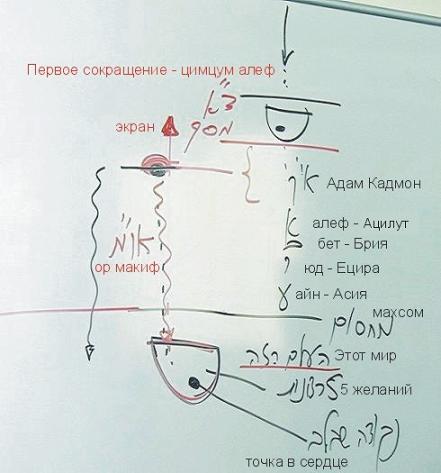 Первое сокращение - цимцум алеф
צ"א
экран
מסך
א"ק Адам Кадмон
א алеф - Ацилут
ב бет - Брия
או"מ
ор макиф
י юд - Ецира
ע айн - Асия
махсом
מחסום
העולם הזה Этот мир
רצונות 5 желаний
נקודה שבלב
точка в сердце